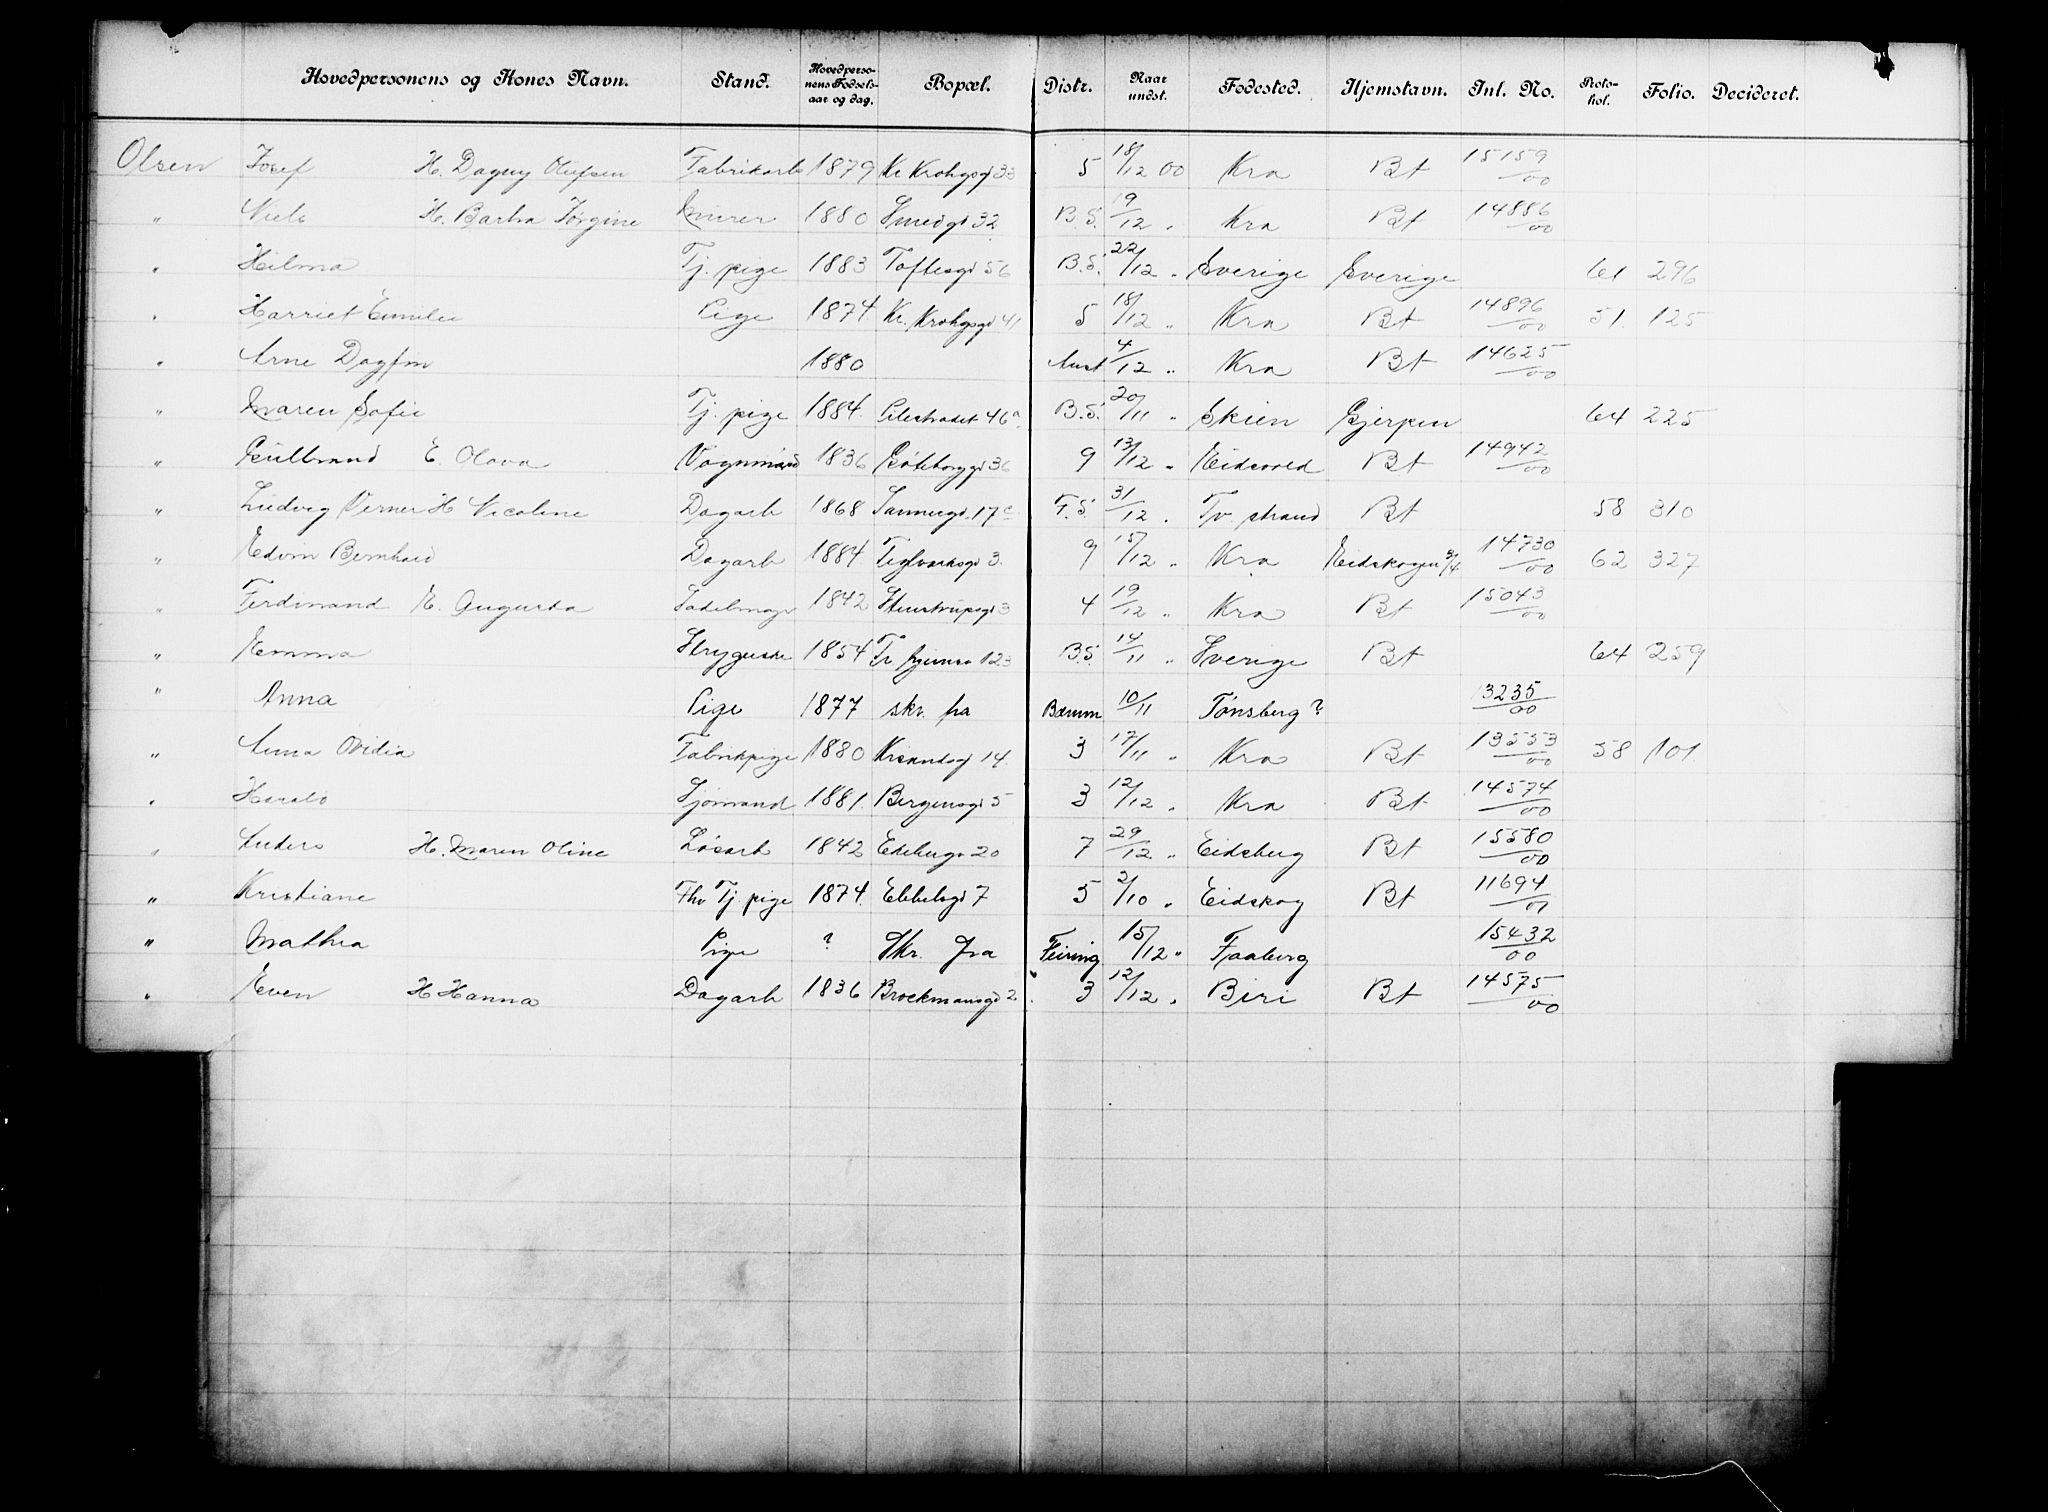 Hovedpersonens og Kones Navn. Stand. Hovedpersonens Fødselsaar og dag. Bopæl. Distr. Naar undst. Fødested. Hjemstavn. Inl. No. Protokol. Folio. Decideret.
Olsen Josef H. Dagny Olufsen Fabrikarb 1879 Kr Krohgsgd 33 5 18/12 00 Kra Bt 15159/00
" Niels H. Barbra Jørgine Murer 1880 Smedgd 32 B.S. 19/12 " Kra Bt 14886/00
" Hilma Tj. pige 1883 Toftesgd 56 B.S. 22/12 " Sverige Sverige 61 296
" Harriet Emilie Pige 1874 Kr. Krohgsgd 41 5 18/12 " Kra Bt 14896/00 51. 125
" Arne Dagfin 1880 Aust 4/12 " Kra Bt 14625/00
" Maren Sofie Tj. pige 1884. Pilestrædet 46a B.S. 20/11 " Skien Gjerpen 64 225
" Gulbrand E. Olava Vognmand 1836 Gøteborggd 36 9 13/12 " Eidsvold Bt 14942/00
" Ludvig Verner H Nicoline Dagarb 1868 Sannergd. 17c F.S. 31/12 " Tv. strand Bt 58 310
" Edvin Bernhard Dagarb 1884. Teglverksgd 3. 9 15/12 " Kra Eidskogen 3/4 14730/00 62 327
" Ferdinand E. Augusta Sadelmager 1842 Stenstrupsgd 3 4 19/12 " Kra Bt 15043/00
" Emma Strygerske 1854 Tr.hjemsv 123 B.S. 14/11 " Sverige Bt 64 259
" Anna Pige 1877 skr. fra Bærum 10/11 Tønsberg? 13235/00
" Anna Ovidia Fabrikpige 1880 Krsandsgd 14. 3 17/11 " Kra Bt 13553/00 58 101.
" Harald Sjømand 1881. Bergensgd 5 3 12/12 " Kra Bt 14574/00
" Anders H. Maren Oline Løsarb 1842 Enebergv 20 7 29/12 " Eidsberg Bt 15580/00
" Kristiane Fhv Tj. pige 1874. Ebbelsgd 7 5 2/10 " Eidskog Bt 11694/01
" Mathea Pige ? Skr. fra Feiring 15/12 " Faaberg 15432/00
" Even H Hanna Dagarb 1836 Brockmansgd 2 3 12/12 " Biri Bt 14575/00